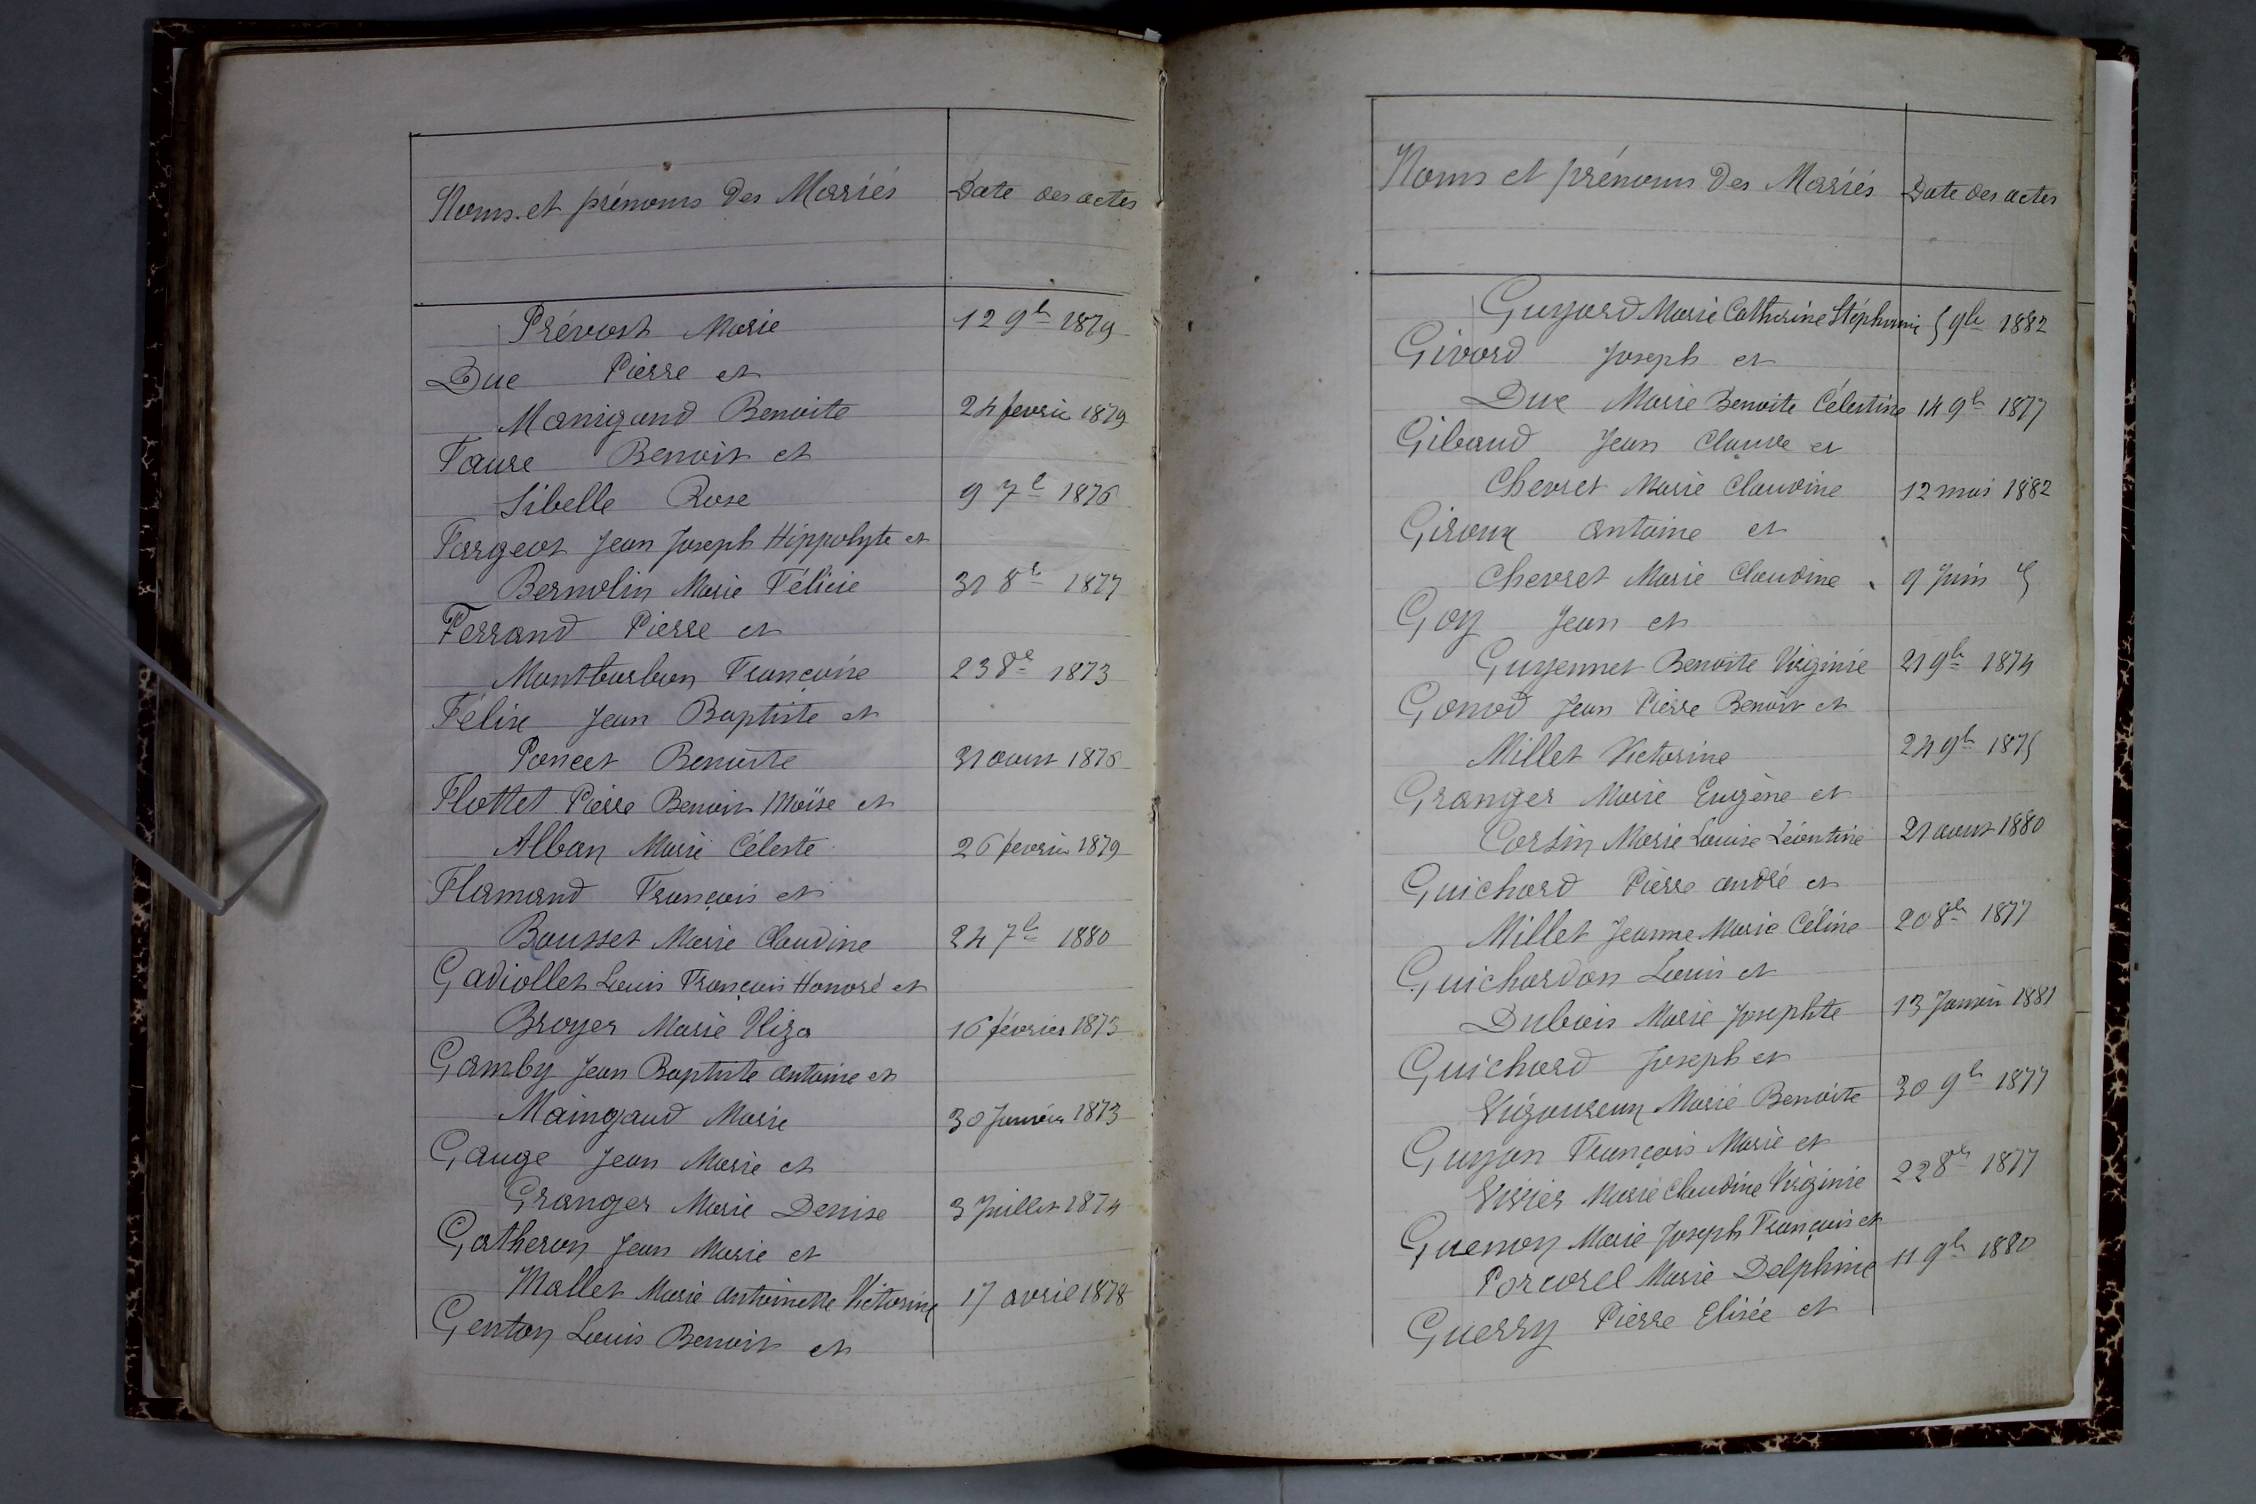 Noms et prénoms des Mariés
Date des actes
Prévost Marie 12 9b 1879
Duc Pierre et
Manigand Benoite 24 fevrie 1879
Faure Benoit et
Sibelle Rose 9 7b 1876
Fargeot Jean Joseph Hippolyte et
Bernolin Marie Félicie 31 8b 1877
Ferrand Pierre et
Montbarbon Françoise 23 8b 1873
Félix Jean Baptiste et
Poncet Benoite 31 aout 1876
Flottet Pierre Benoit Moïse et
Alban Marie Céleste 26 fevrier 1879
Flamand François et
Bousset Marie Claudine 24 7b 1880
Gadiollet Louis François Honoré et
Broyer Marie Eliza 16 février 1875
Gamby Jean Baptiste antoine et
Maingaud Marie 30 Janvier 1873
Gauge Jean Marie et
Granger Marie Denise 3 Juillet 1874
Gatheron Jean Marie et
Mallet Marie antoinette Victorine 17 avril 1878
Genton Louis Benoit et
Noms et prénoms des Mariés
Date des actes
Guyard Marie Catherine Stéphanie 5 9b 1882
Givord Joseph et
Duc Marie Benoite Célestine 14 9b 1877
Gibaud Jean Claude et
Chevret Marie Claudine 12 mai 1882
Giroux antoine et
Chevret Marie Claudine 9 Juin
Goy Jean et
Guyennet Benoite Virginie 21 9b 1874
Gonod Jean Pierre Benoit et
Millet Victorine 24 9b 1875
Granger Marie Eugène et
Corsin Marie Louise Léontine 21 aout 1880
Guichard Pierre andré et
Millet Jeanne Marie Céline 20 8b 1877
Guichardon Louis et
Dubois Marie Josephte 13 Janvier 1881
Guichard Joseph et
Vigoureux Marie Benoite 30 9b 1877
Guyon François Marie et
Vivier Marie Claudine Virginie 22 8b 1877
Guenon Marie Joseph François et
Porcorel Marie Delphine 11 9b 1880
Guerry Pierre Elisée et